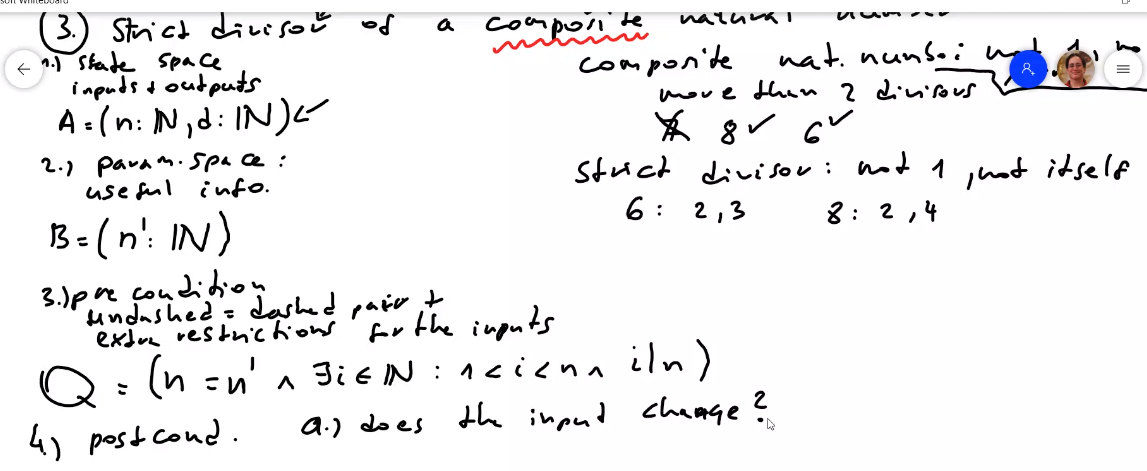 soft Whiteboard
3.) Strict divisor of a composite natural number
1.) state space
inputs + outputs
A = (n: ℕ, d: ℕ) ✓
2.) param. space:
useful info.
B = (n': ℕ)
3.) pre condition
undashed = dashed pair +
extra restrictions for the inputs
Q = (n = n' ∧ ∃i ∈ ℕ : 1 < i < n ∧ i|n)
4.) postcond. a.) does the input change?
composite nat. number: not 1,
more than 2 divisors
8 ✓ 6 ✓
strict divisor: not 1, not itself
6: 2,3 8: 2,4